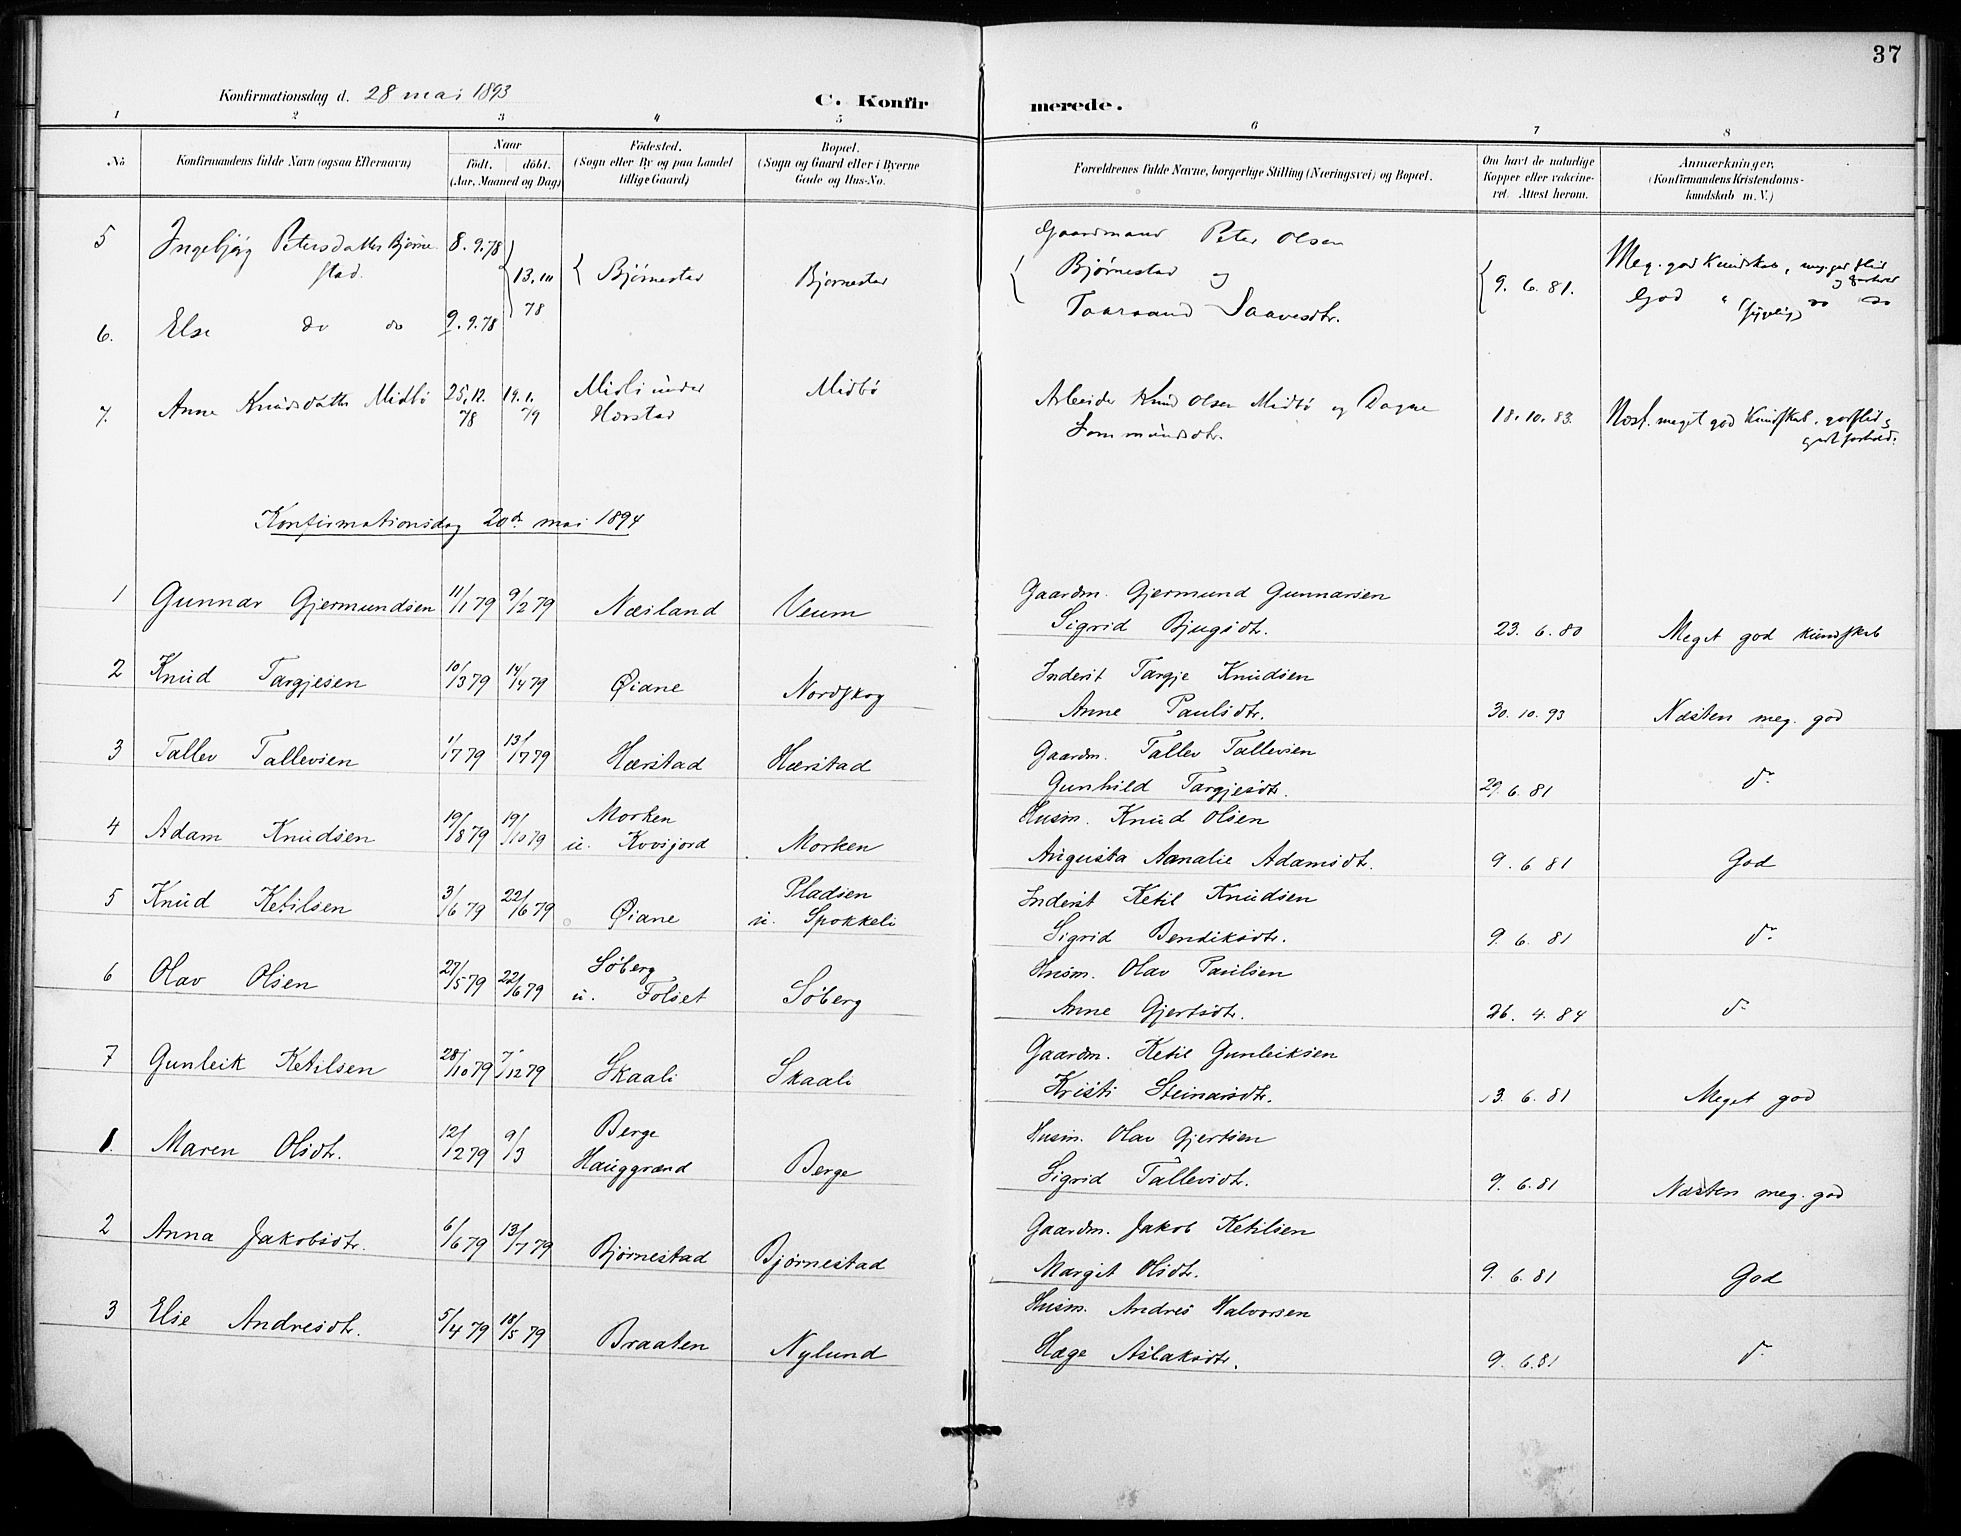 37
Konfirmationsdag d. 28 mai 1893
C. Konfirmerede.
1 2 3 4 5 6 7 8
No
Konfirmandens fulde Navn (ogsaa Efternavn)
Naar
födt. döbt.
(Aar, Maaned og Dag)
Födested.
(Sogn eller By og paa Landet
tillige Gaard)
Bopæl.
(Sogn og Gaard eller i Byerne
Gade og Hus-No.
Forældrenes fulde Navne, borgerlige Stilling (Næringsvei) og Bopæl.
Om havt de naturlige
Kopper eller vakcine-
ret. Attest herom.
Anmærkninger.
(Konfirmandens Kristendoms-
kundskab m. V.)
5 Ingebjørg Petersdatter Bjørne-
stad. 8.9.78 { 13.10 78 { Bjørnestad Bjørnestad
Gaardmand Peter Olsen
Bjørnestad og
Taaraand Saavesdtr. { 9. 6. 81. Meg. god Kundskab, meg. god flid
6. Else do do 9.9.78
God " do do
7. Anne Knudsdatter Midbö 25.12. 78 19.1. 79 Midli under
Hærstad Midbö
Arbeider Knud Olsen Midbö og Dagne
Sommundsdtr. 18.10.83. Næst. meget god Kundskab, god flid &
godt forhold.
Konfirmationsdag 20de mai 1894
1 Gunnar Gjermundsen 11/1 79 9/2 79 Næsland Veum
Gaardm. Gjermund Gunnarsen
Sigrid Bjugsdtr. 23. 6. 80 Meget god kundskab
2 Knud Targjesen 10/3 79 14/4 79 Øiane Nordskog
Inderst Targje Knudsen
Anne Paulsdtr. 30. 10. 93 Næsten meg. god
3 Tallev Tallevsen 1/7 79 13/7 79 Hærstad Hærstad
Gaardm. Tallev Tallevsen
Gunhild Targjesdtr. 29. 6. 81 do
4 Adam Knudsen 19/8 79 19/10 79 Morken
u. Kvosjord Morken
Husm. Knud Olsen
Augusta Amalie Adamsdtr. 9. 6 81 God
5 Knud Ketilsen 3/6 79 22/6 79 Øiane Pladsen
u. Spokkeli
Inderst Ketil Knudsen
Sigrid Bendiksdtr. 9. 6. 81 do
6 Olav Olsen 27/5 79 22/6 79 Söberg
u. Folset Söberg
Husm. Olav Paulsen
Anne Gjertsdtr. 26. 4. 84 do
7 Gunleik Ketilsen 28/10 79 7/12 79 Skaali Skaali
Gaardm. Ketil Gunleiksen
Kristi Steinarsdtr. 13. 6. 81 Meget god
1. Maren Olsdtr. 12/2 79 9/3 Berge
Hauggrænd Berge
Husm. Olav Gjertsen
Sigrid Tallevsdtr. 9. 6. 81 Næsten meg. god
2 Anna Jakobsdtr. 6/6 79 13/7 79 Bjørnestad Bjørnestad
Gaardm. Jakob Ketilsen
Margit Olsdtr. 9. 6. 81 God
3 Else Andresdtr. 5/4 79 18/5 79 Braaten Nylund
Husm. Andres Halvorsen
Hæge Aslaksdtr. 9. 6. 81 do